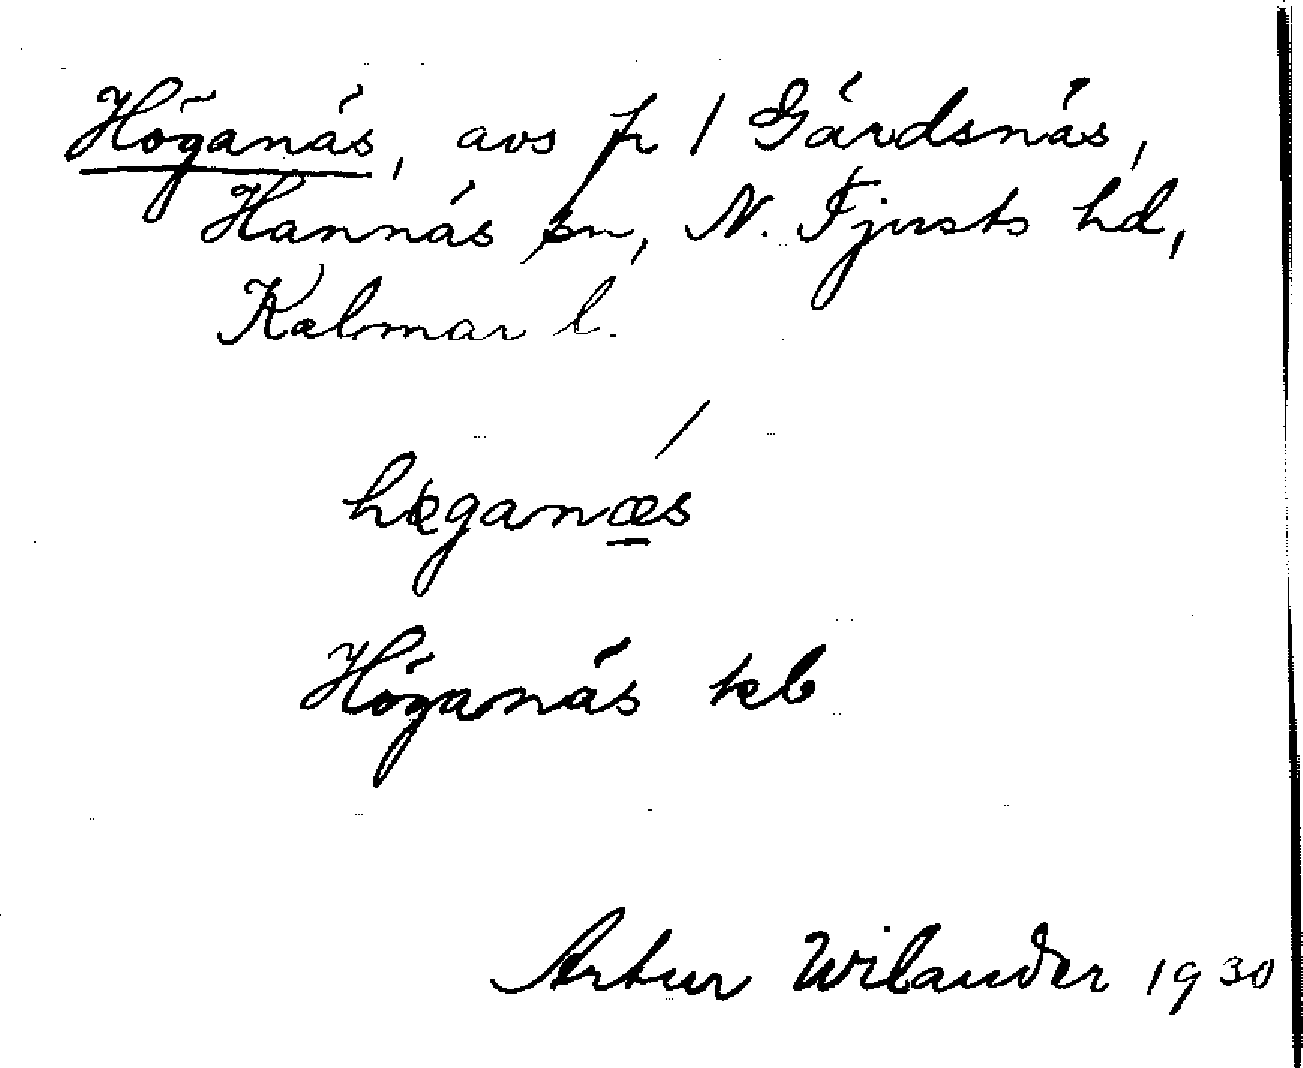 Höganäs, avs fr 1 Gärdsnäs,
Hannäs sn, N. Tjusts hd,
Kalmar l.
høganæs
Höganäs kb
Artur Wilander 1930